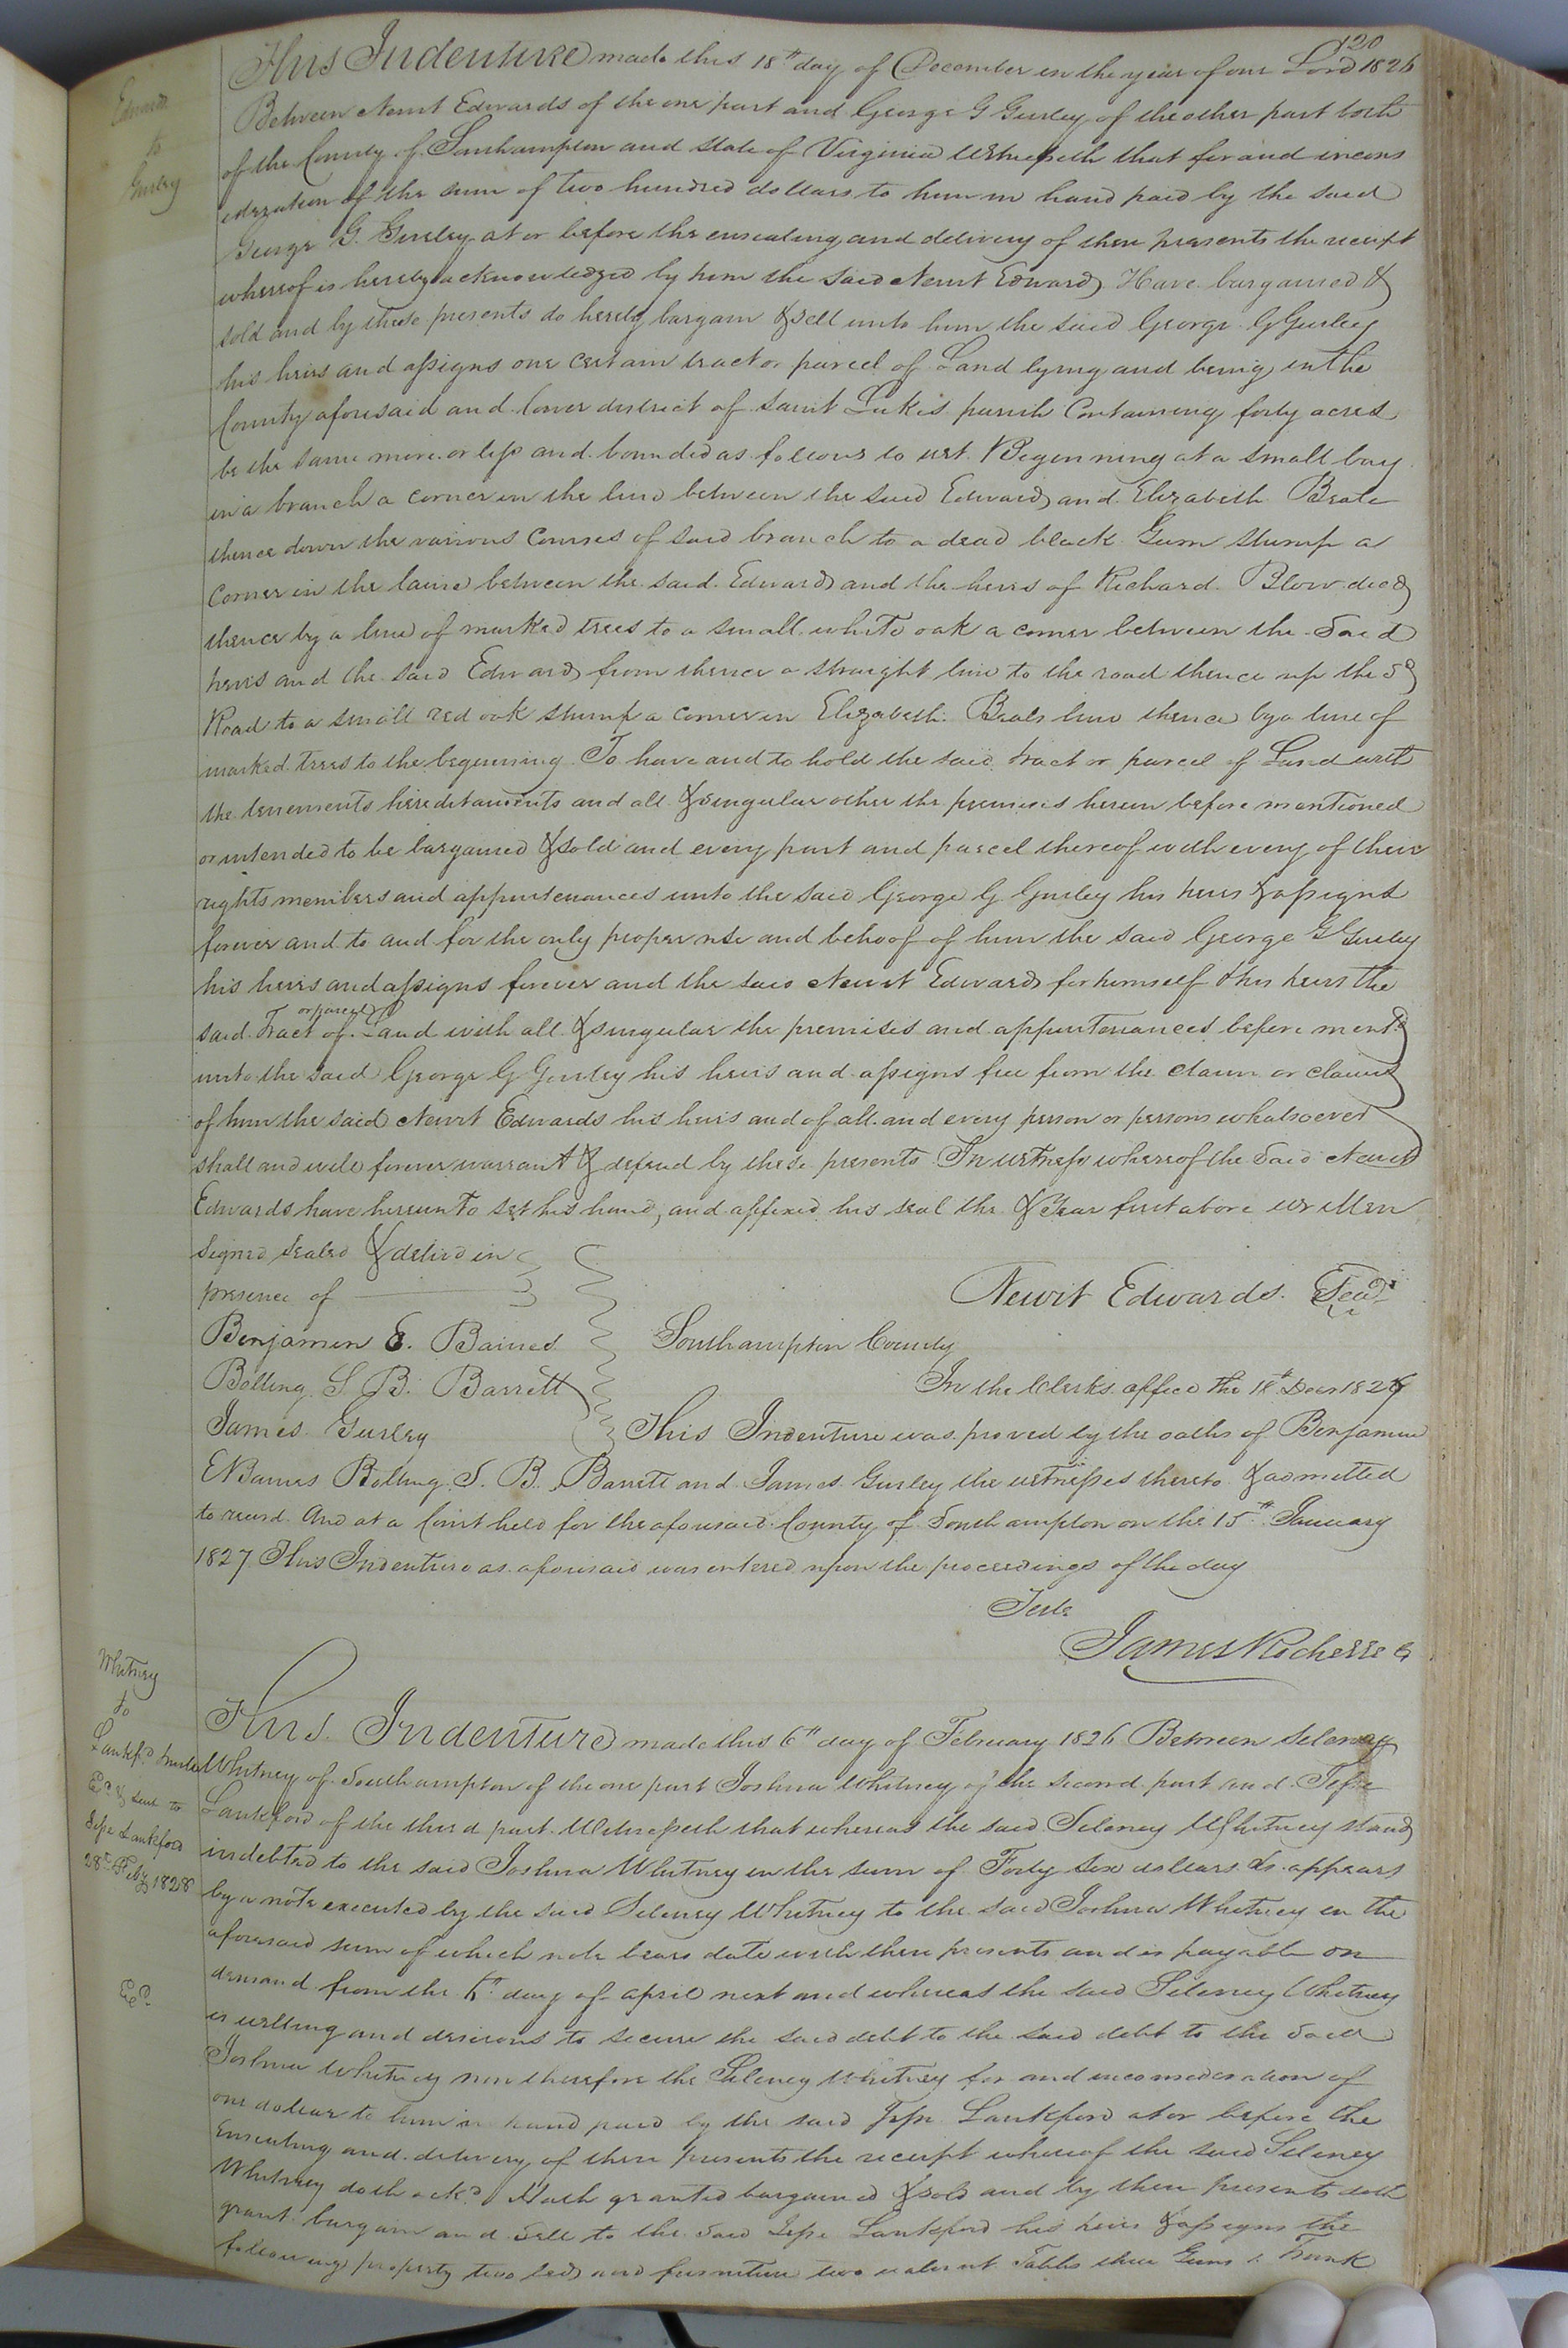 120
Edwards
to
Gurley
This Indenture made this 18th day of December in the year of our Lord 1826
Between Newit Edwards of the one part and George G Gurley of the other part both
of the County of Southampton and state of Virginia Witnesseth that for and in cons
ideration of the sum of two hundred dollars to him in hand paid by the said
George G. Gurley at or before the ensealing and delivery of these presents the receipt
whereof is hereby acknowledged by him the said Newit Edwards Have bargained &
sold and by these presents do hereby bargain & sell unto him the said George G Gurley
his heirs and assigns one certain tract or parcel of Land lying and being in the
County aforesaid and lower district of saint Lukes parish Containing forty acres
be the same more or less and bounded as follows to wit Beginning at a small bay
in a branch a corner in the line between the said Edwards and Elizabeth Beale
thence down the various Courses of said branch to a dead black Gum stump a
Corner in the line between the said Edwards and the heirs of Richard Blow decd
thence by a line of marked trees to a small white oak a corner between the said
heirs and the said Edwards from thence a straight line to the road thence up the sd
Road to a small red oak stump a corner in Elizabeth Beals line thence by a line of
marked trees to the beginning To have and to hold the said tract or parcel of Land with
the tenements hereditaments and all & singular other the premises herein before mentioned
or intended to be bargained & sold and every part and parcel thereof with every of their
rights members and appurtenances unto the said George G Gurley his heirs & assigns
forever and to and for the only proper use and behoof of him the said George G Gurley
his heirs and assigns forever and the said Newit Edwards for himself & his heirs the
said Tract or parcel of Land with all & singular the premises and appurtenances before mentd
unto the said George G Gurley his heirs and assigns free from the claim or claims
of him the said Newit Edwards his heirs and of all and every person or persons whatsoever
shall and will forever warrant & defend by these presents In witness whereof the said Newit
Edwards have hereunto set his hand, and affixed his seal the & Year first above written
Signed Sealed & delivd in
presence of
Newit Edwards Seal
Benjamin E. Baines
Bolling S. B. Barrett
James Gurley
Southampton County
In the Clerks office the 18th Decr 1826
This Indenture was proved by the oaths of Benjamin
E Baines Bolling S. B. Barrett and James Gurley the witnesses thereto & admitted
to record And at a Court held for the aforesaid County of Southampton on the 15th January
1827 This Indenture as aforesaid was entered upon the proceedings of the day
Teste
James Rochelle C
Whitney
to
Lankfd trustee
Ed & sent to
Jesse Lankford
28th Feby 1828
Exd
This Indenture made this 6th day of February 1826 Between Seleney
Whitney of Southampton of the one part Joshua Whitney of the second part and Jesse
Lankford of the third part Witnesseth that whereas the said Seleney Whitney stands
indebted to the said Joshua Whitney in the sum of Forty six dollars as appears
by a note executed by the said Seleney Whitney to the said Joshua Whitney in the
aforesaid sum of which note bears date with these presents and is payable on
demand from the day of april next and whereas the said Seleney Whitney
is willing and desirous to secure the said debt to the said debt to the said
Joshua Whitney now therefore the Seleney Whitney for and in consideration of
one dollar to him in hand paid by the said Jesse Lankford at or before the
Ensealing and delivery of these presents the receipt whereof the said Seleney
Whitney doth ackd Hath granted bargained & sold and by these presents doth
grant bargain and sell to the said Jesse Lankford his heirs & assigns the
following property two beds and furniture two walnut Tables three Guns 1 Trunk